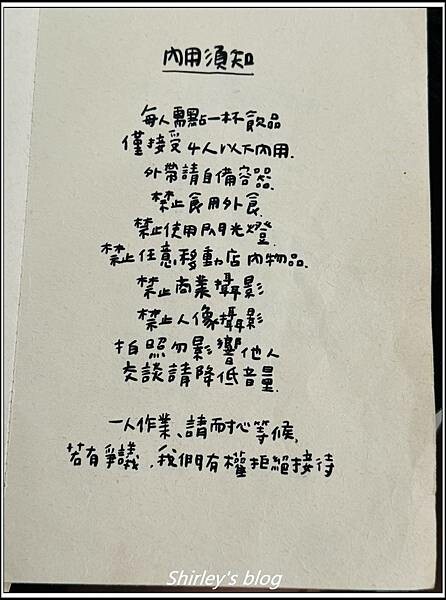 內用須知
每人需點一杯飲品
僅接受4人以下內用.
外帶請自備容器.
禁止食用外食.
禁止使用閃光燈.
禁止任意移動店內物品.
禁止商業攝影
禁止人像攝影
拍照勿影響他人
交談請降低音量.
一人作業、請耐心等候,
若有爭議,我們有權拒絕接待
Shirley's blog